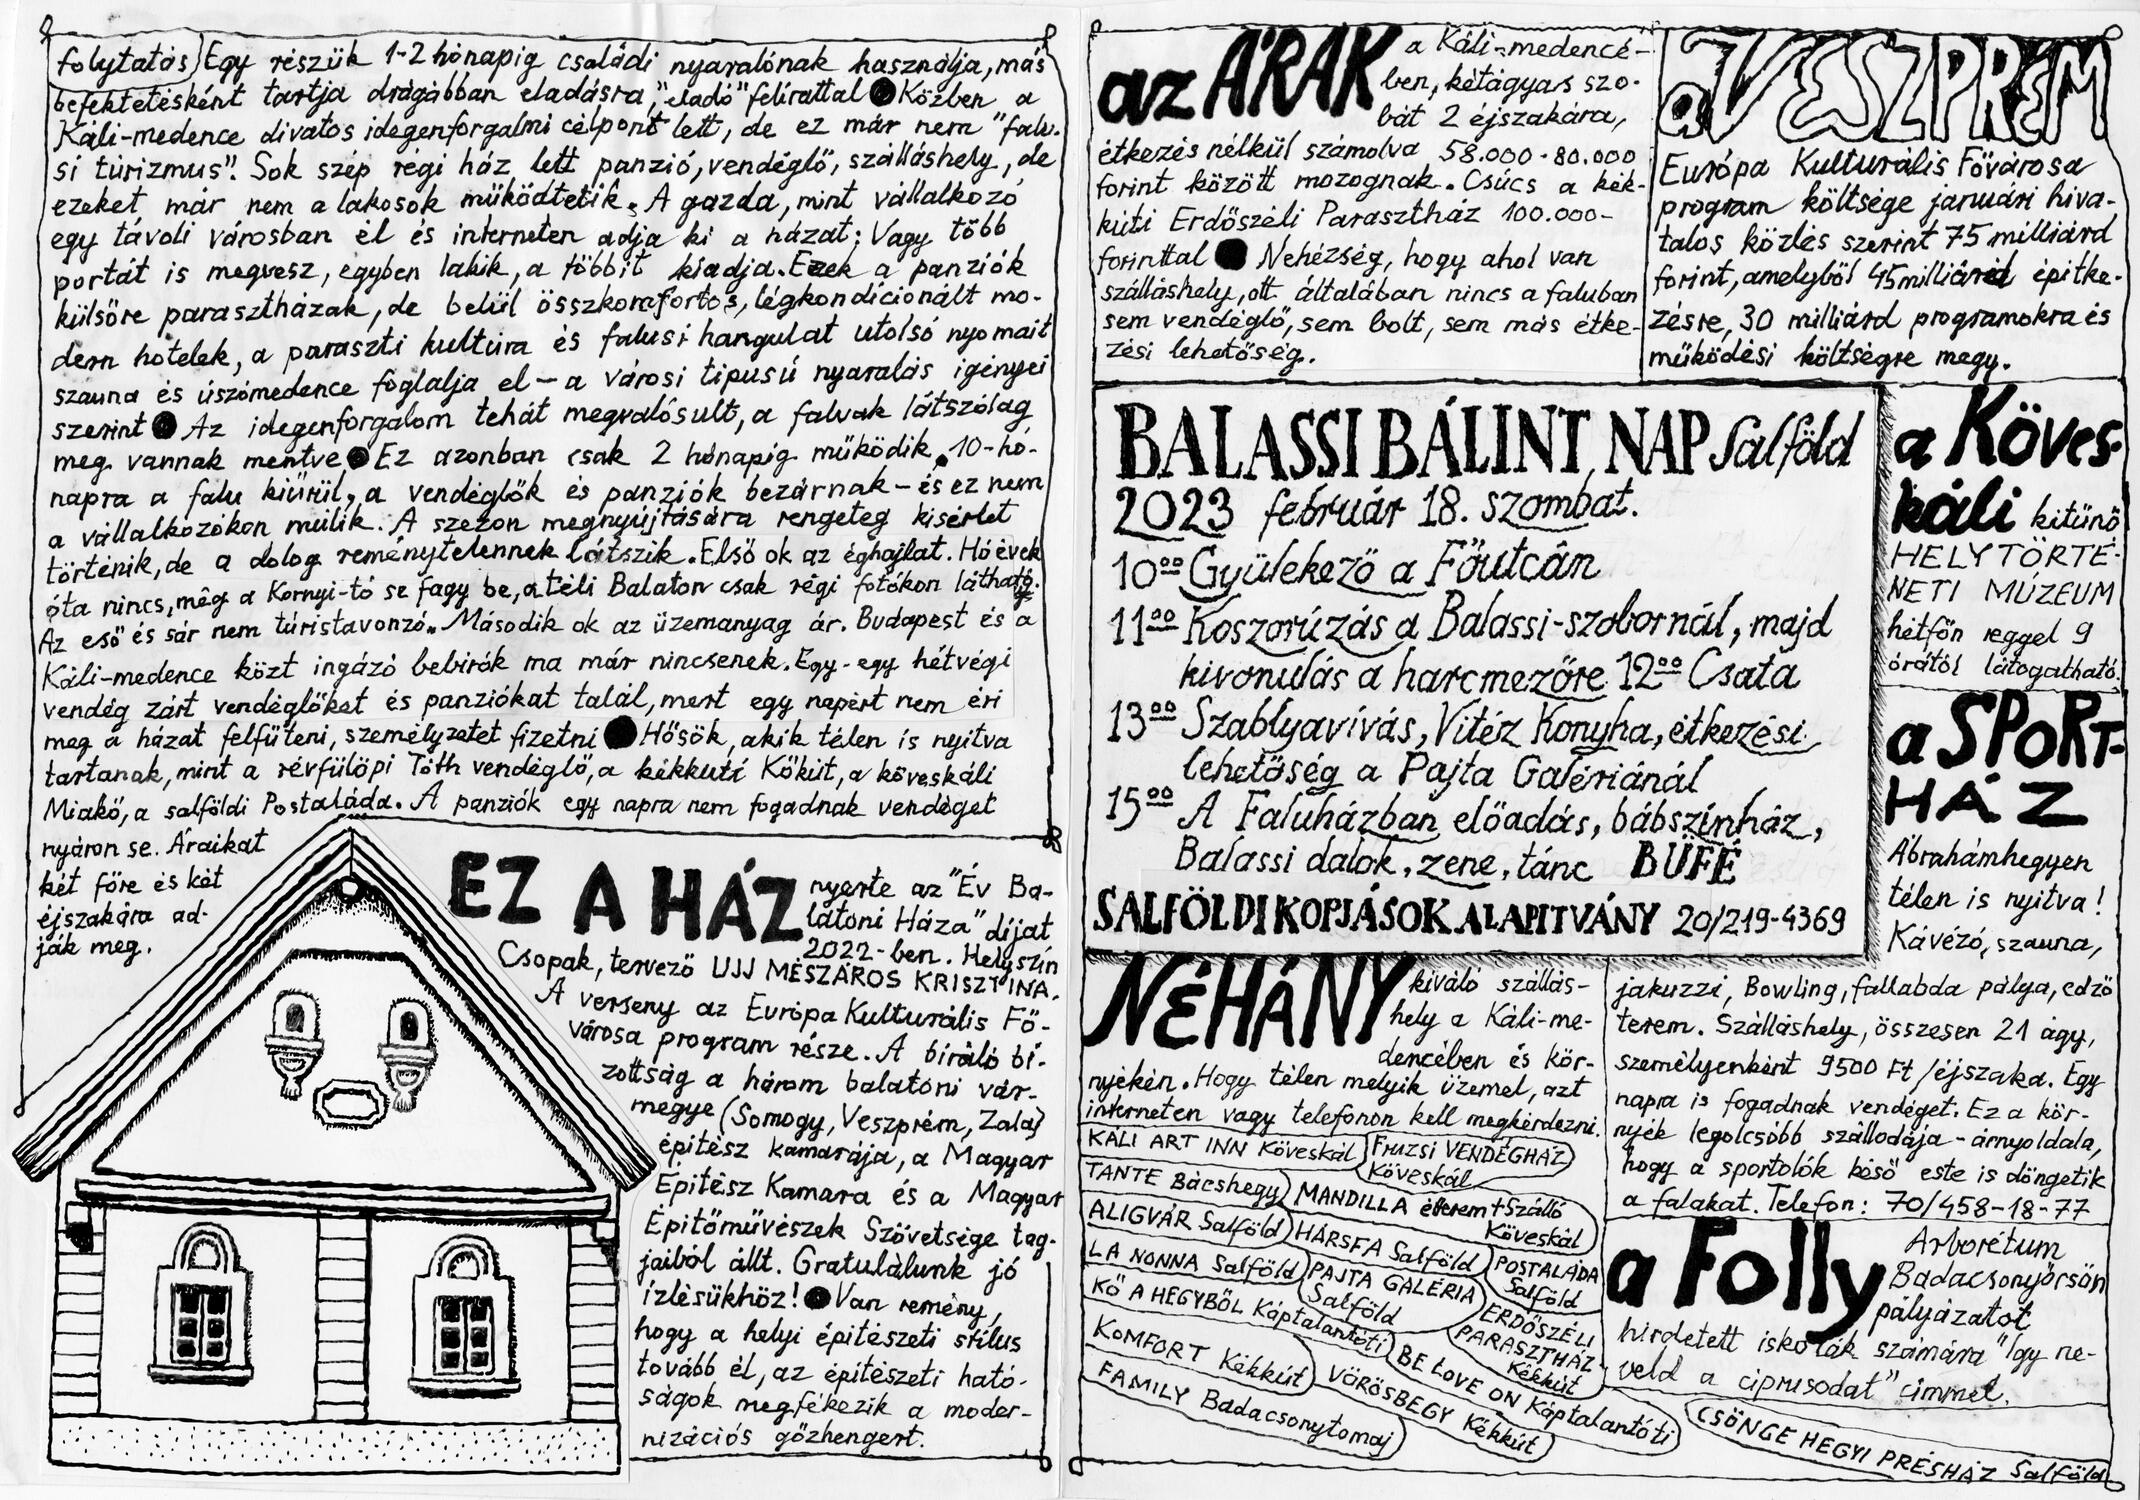 folytatás) Egy részük 1-2 hónapig családi nyaralónak használja, más
befektetésként tartja drágábban eladásra, "eladó" felirattal ● Közben a
Káli-medence divatos idegenforgalmi célpont lett, de ez már nem "falu-
si túrizmus". Sok szép régi ház lett panzió, vendéglő, szálláshely, de
ezeket már nem a lakosok működtetik. A gazda, mint vállalkozó
egy távoli városban él és interneten adja ki a házat; Vagy több
portát is megvesz, egyben lakik, a többit kiadja. Ezek a panziók
külsőre parasztházak, de belül összkomfortos, légkondícionált mo-
dern hotelek, a paraszti kultúra és falusi hangulat utolsó nyomait
szauna és úszómedence foglalja el – a városi tipusú nyaralás igényei
szerint ● Az idegenforgalom tehát megvalósult, a falvak látszólag
meg vannak mentve ● Ez azonban csak 2 hónapig működik, 10-hó-
napra a falu kiürül, a vendéglők és panziók bezárnak – és ez nem
a vállalkozókon múlik. A szezon megnyújtására rengeteg kisérlet
történik, de a dolog reménytelennek látszik. Első ok az éghajlat. Hó évek
óta nincs, még a Kornyi-tó se fagy be, a téli Balaton csak régi fotókon látható.
Az eső és sár nem túristavonzó. Második ok az üzemanyag ár. Budapest és a
Káli-medence közt ingázó bebirók ma már nincsenek. Egy-egy hétvégi
vendég zárt vendéglőket és panziókat talál, mert egy napért nem éri
meg a házat felfűteni, személyzetet fizetni ● Hősök, akik télen is nyitva
tartanak, mint a révfülöpi Tóth vendéglő, a kékkuti Kőkút, a köveskáli
Miakő, a salföldi Postaláda. A panziók egy napra nem fogadnak vendéget
nyáron se. Áraikat
két főre és két
éjszakára ad-
ják meg.
EZ A HÁZ nyerte az "Év Ba-
latoni Háza" díjat
2022-ben. Helyszín
Csopak, tervező UJJ MÉSZÁROS KRISZTINA.
A verseny az Európa Kulturális Fő-
városa program része. A biráló bi-
zottság a három balatoni vár-
megye (Somogy, Veszprém, Zala)
épitész kamarája, a Magyar
Épitész Kamara és a Magyar
Épitőművészek Szövetsége tag-
jaiból állt. Gratulálunk jó
ízlésükhöz! ● Van remény,
hogy a helyi épitészeti stílus
tovább él, az épitészeti ható-
ságok megfékezik a moder-
nizációs gőzhengert.
az ÁRAK a Káli-medencé-
ben, kétágyas szo-
bát 2 éjszakára,
étkezés nélkül számolva 58.000-80.000
forint között mozognak. Csúcs a kék-
kúti Erdőszéli Parasztház 100.000-
forinttal ● Nehézség, hogy ahol van
szálláshely, ott általában nincs a faluban
sem vendéglő, sem bolt, sem más étke-
zési lehetőség.
a VESZPRÉM
Európa Kulturális Fővárosa
program költsége januári hiva-
talos közlés szerint 75 milliárd
forint, amelyből 45 milliárd épitke-
zésre, 30 milliárd programokra és
működési költségre megy.
BALASSI BÁLINT NAP Salföld
2023 február 18. szombat.
10⁰⁰ Gyülekező a Főutcán
11⁰⁰ Koszorúzás a Balassi-szobornál, majd
kivonulás a harcmezőre 12⁰⁰ Csata
13⁰⁰ Szablyavívás, Vitéz Konyha, étkezési
lehetőség a Pajta Galériánál
15⁰⁰ A Faluházban előadás, bábszínház,
Balassi dalok, zene, tánc BÜFÉ
SALFÖLDI KOPJÁSOK ALAPITVÁNY 20/219-4369
a Köves-
káli kitűnő
HELYTÖRTÉ-
NETI MÚZEUM
hétfőn reggel 9
órától látogatható.
a SPORT-
HÁZ
Ábrahámhegyen
télen is nyitva!
Kávézó, szauna,
jakuzzi, Bowling, fallabda pálya, edző
terem. Szálláshely, összesen 21 ágy,
személyenként 9500 Ft/éjszaka. Egy
napra is fogadnak vendéget. Ez a kör-
nyék legolcsóbb szállodája – árnyoldala,
hogy a sportolók késő este is döngetik
a falakat. Telefon: 70/458-18-77
NÉHÁNY kiváló szállás-
hely a Káli-me-
dencében és kör-
nyékén. Hogy télen melyik üzemel, azt
interneten vagy telefonon kell megkérdezni.
KÁLI ART INN Köveskál
FRUZSI VENDÉGHÁZ
Köveskál
TANTE Bácshegy
MANDILLA étterem + Szálló
Köveskál
ALIGVÁR Salföld
HÁRSFA Salföld
POSTALÁDA
Salföld
LA NONNA Salföld
PAJTA GALÉRIA
Salföld
ERDŐSZÉLI
PARASZTHÁZ
Kékkút
KŐ A HEGYBŐL Káptalantóti
KOMFORT Kékkút
BE LOVE ON Káptalantóti
VÖRÖSBEGY Kékkút
FAMILY Badacsonytomaj
CSÖNGE HEGYI PRÉSHÁZ Salföld
a Folly Arborétum
Badacsonyörsön
pályázatot
hirdetett iskolák számára "Igy ne-
veld a ciprusodat" címmel.